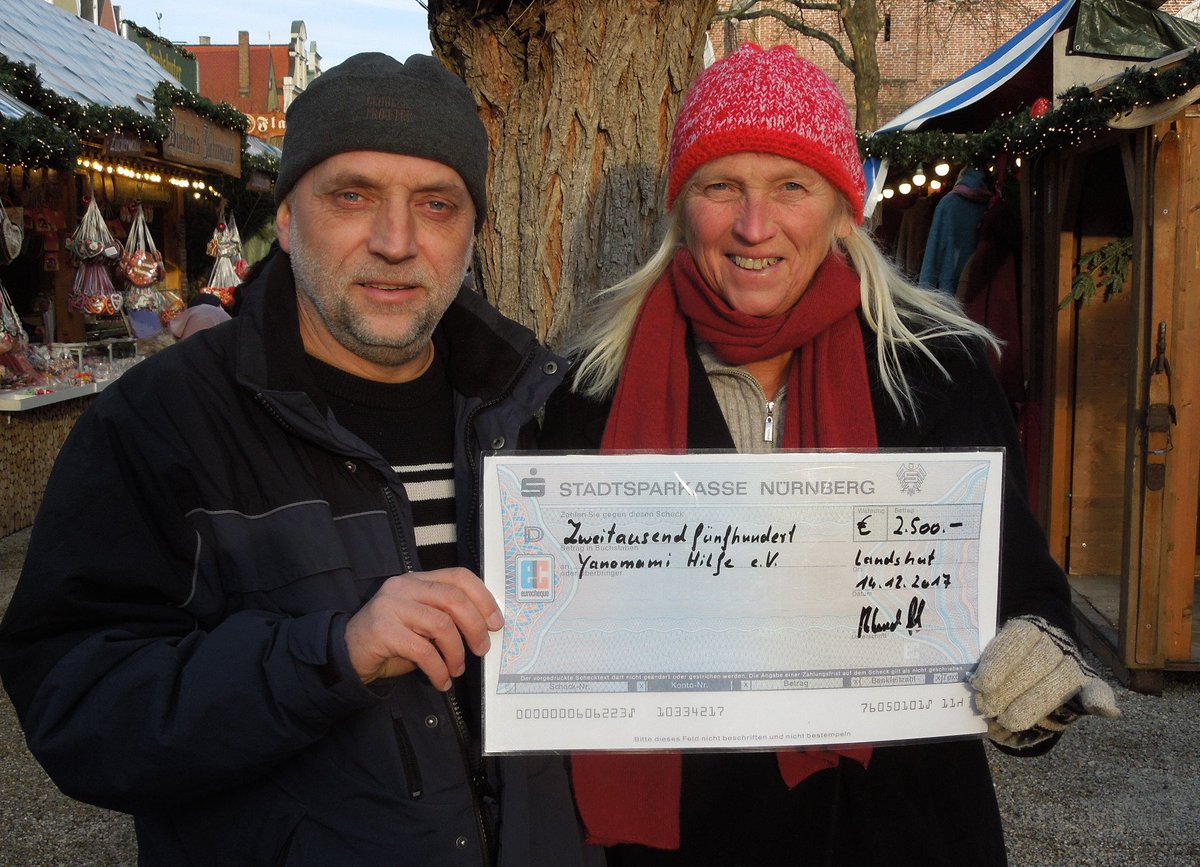 Fla
STADTSPARKASSE NÜRNBERG
Zahlen Sie gegen diesen Scheck
Währung Betrag
Zweitausend fünfhundert € 2.500.-
D
Betrag in Buchstaben
Yanomami Hilfe e.V. Landshut
an
oder Überbringer
ec
eurocheque
14.12.2017
Datum
Der vorgedruckte Schecktext darf nicht geändert oder gestrichen werden. Die Angabe einer Zahlungsfrist auf dem Scheck gilt als nicht geschrieben.
Scheck-Nr. X Konto-Nr. X Betrag X Bankleitzahl X Text
0000000606223 10334217 76050101 11H
Bitte dieses Feld nicht beschriften und nicht bestempeln